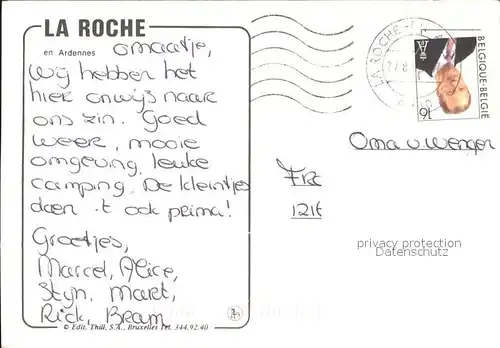 LA ROCHE
en Ardennes
Omaatje,
Wij hebben het
hier onwijs naar
ons zin. Goed
weer, mooie
omgeving, leuke
camping. De kleintjes
doen 't ook prima!
Groetjes,
Marcel, Alice,
Styn, Maret,
Rick, Bram
© Edit. Thill, S.A., Bruxelles Tel. 344.92.40
LA ROCHE-
BELGIQUE-BELGIË
16
Oma v. Wengen
privacy protection
www.oldthing.de